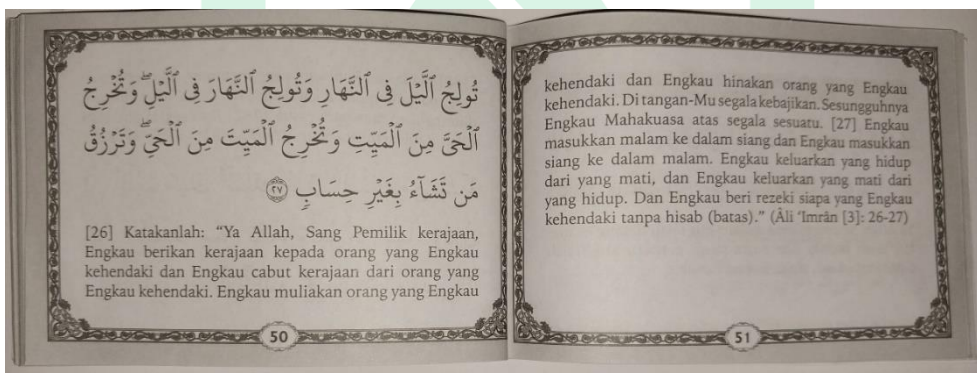 تُولِجُ ٱلَّيْلَ فِى ٱلنَّهَارِ وَتُولِجُ ٱلنَّهَارَ فِى ٱلَّيْلِ ۖ وَتُخْرِجُ
ٱلْحَىَّ مِنَ ٱلْمَيِّتِ وَتُخْرِجُ ٱلْمَيِّتَ مِنَ ٱلْحَىِّ ۖ وَتَرْزُقُ
مَن تَشَآءُ بِغَيْرِ حِسَابٍ ۝٢٧
[26] Katakanlah: “Ya Allah, Sang Pemilik kerajaan,
Engkau berikan kerajaan kepada orang yang Engkau
kehendaki dan Engkau cabut kerajaan dari orang yang
Engkau kehendaki. Engkau muliakan orang yang Engkau
50
kehendaki dan Engkau hinakan orang yang Engkau
kehendaki. Di tangan-Mu segala kebajikan. Sesungguhnya
Engkau Mahakuasa atas segala sesuatu. [27] Engkau
masukkan malam ke dalam siang dan Engkau masukkan
siang ke dalam malam. Engkau keluarkan yang hidup
dari yang mati, dan Engkau keluarkan yang mati dari
yang hidup. Dan Engkau beri rezeki siapa yang Engkau
kehendaki tanpa hisab (batas).” (Âli ‘Imrân [3]: 26-27)
51